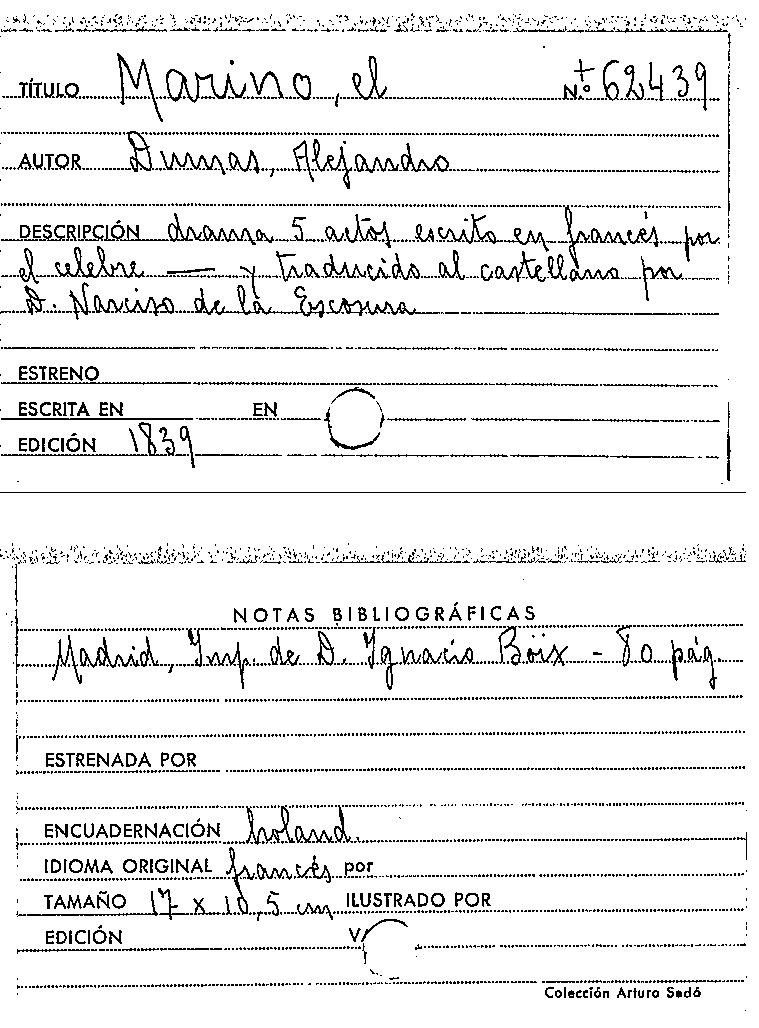 TÍTULO Marino, el N.º + 62439
AUTOR Dumas, Alejandro
DESCRIPCIÓN drama 5 actos escrito en francés por
el celebre — y traducido al castellano por
D. Narciso de la Escosura
ESTRENO
ESCRITA EN EN
EDICIÓN 1839
NOTAS BIBLIOGRÁFICAS
Madrid, Imp. de D. Ignacio Böix - 80 pág.
ESTRENADA POR
ENCUADERNACIÓN holand.
IDIOMA ORIGINAL francés por
TAMAÑO 17 x 10,5 cm ILUSTRADO POR
EDICIÓN V/
Colección Arturo Sedó